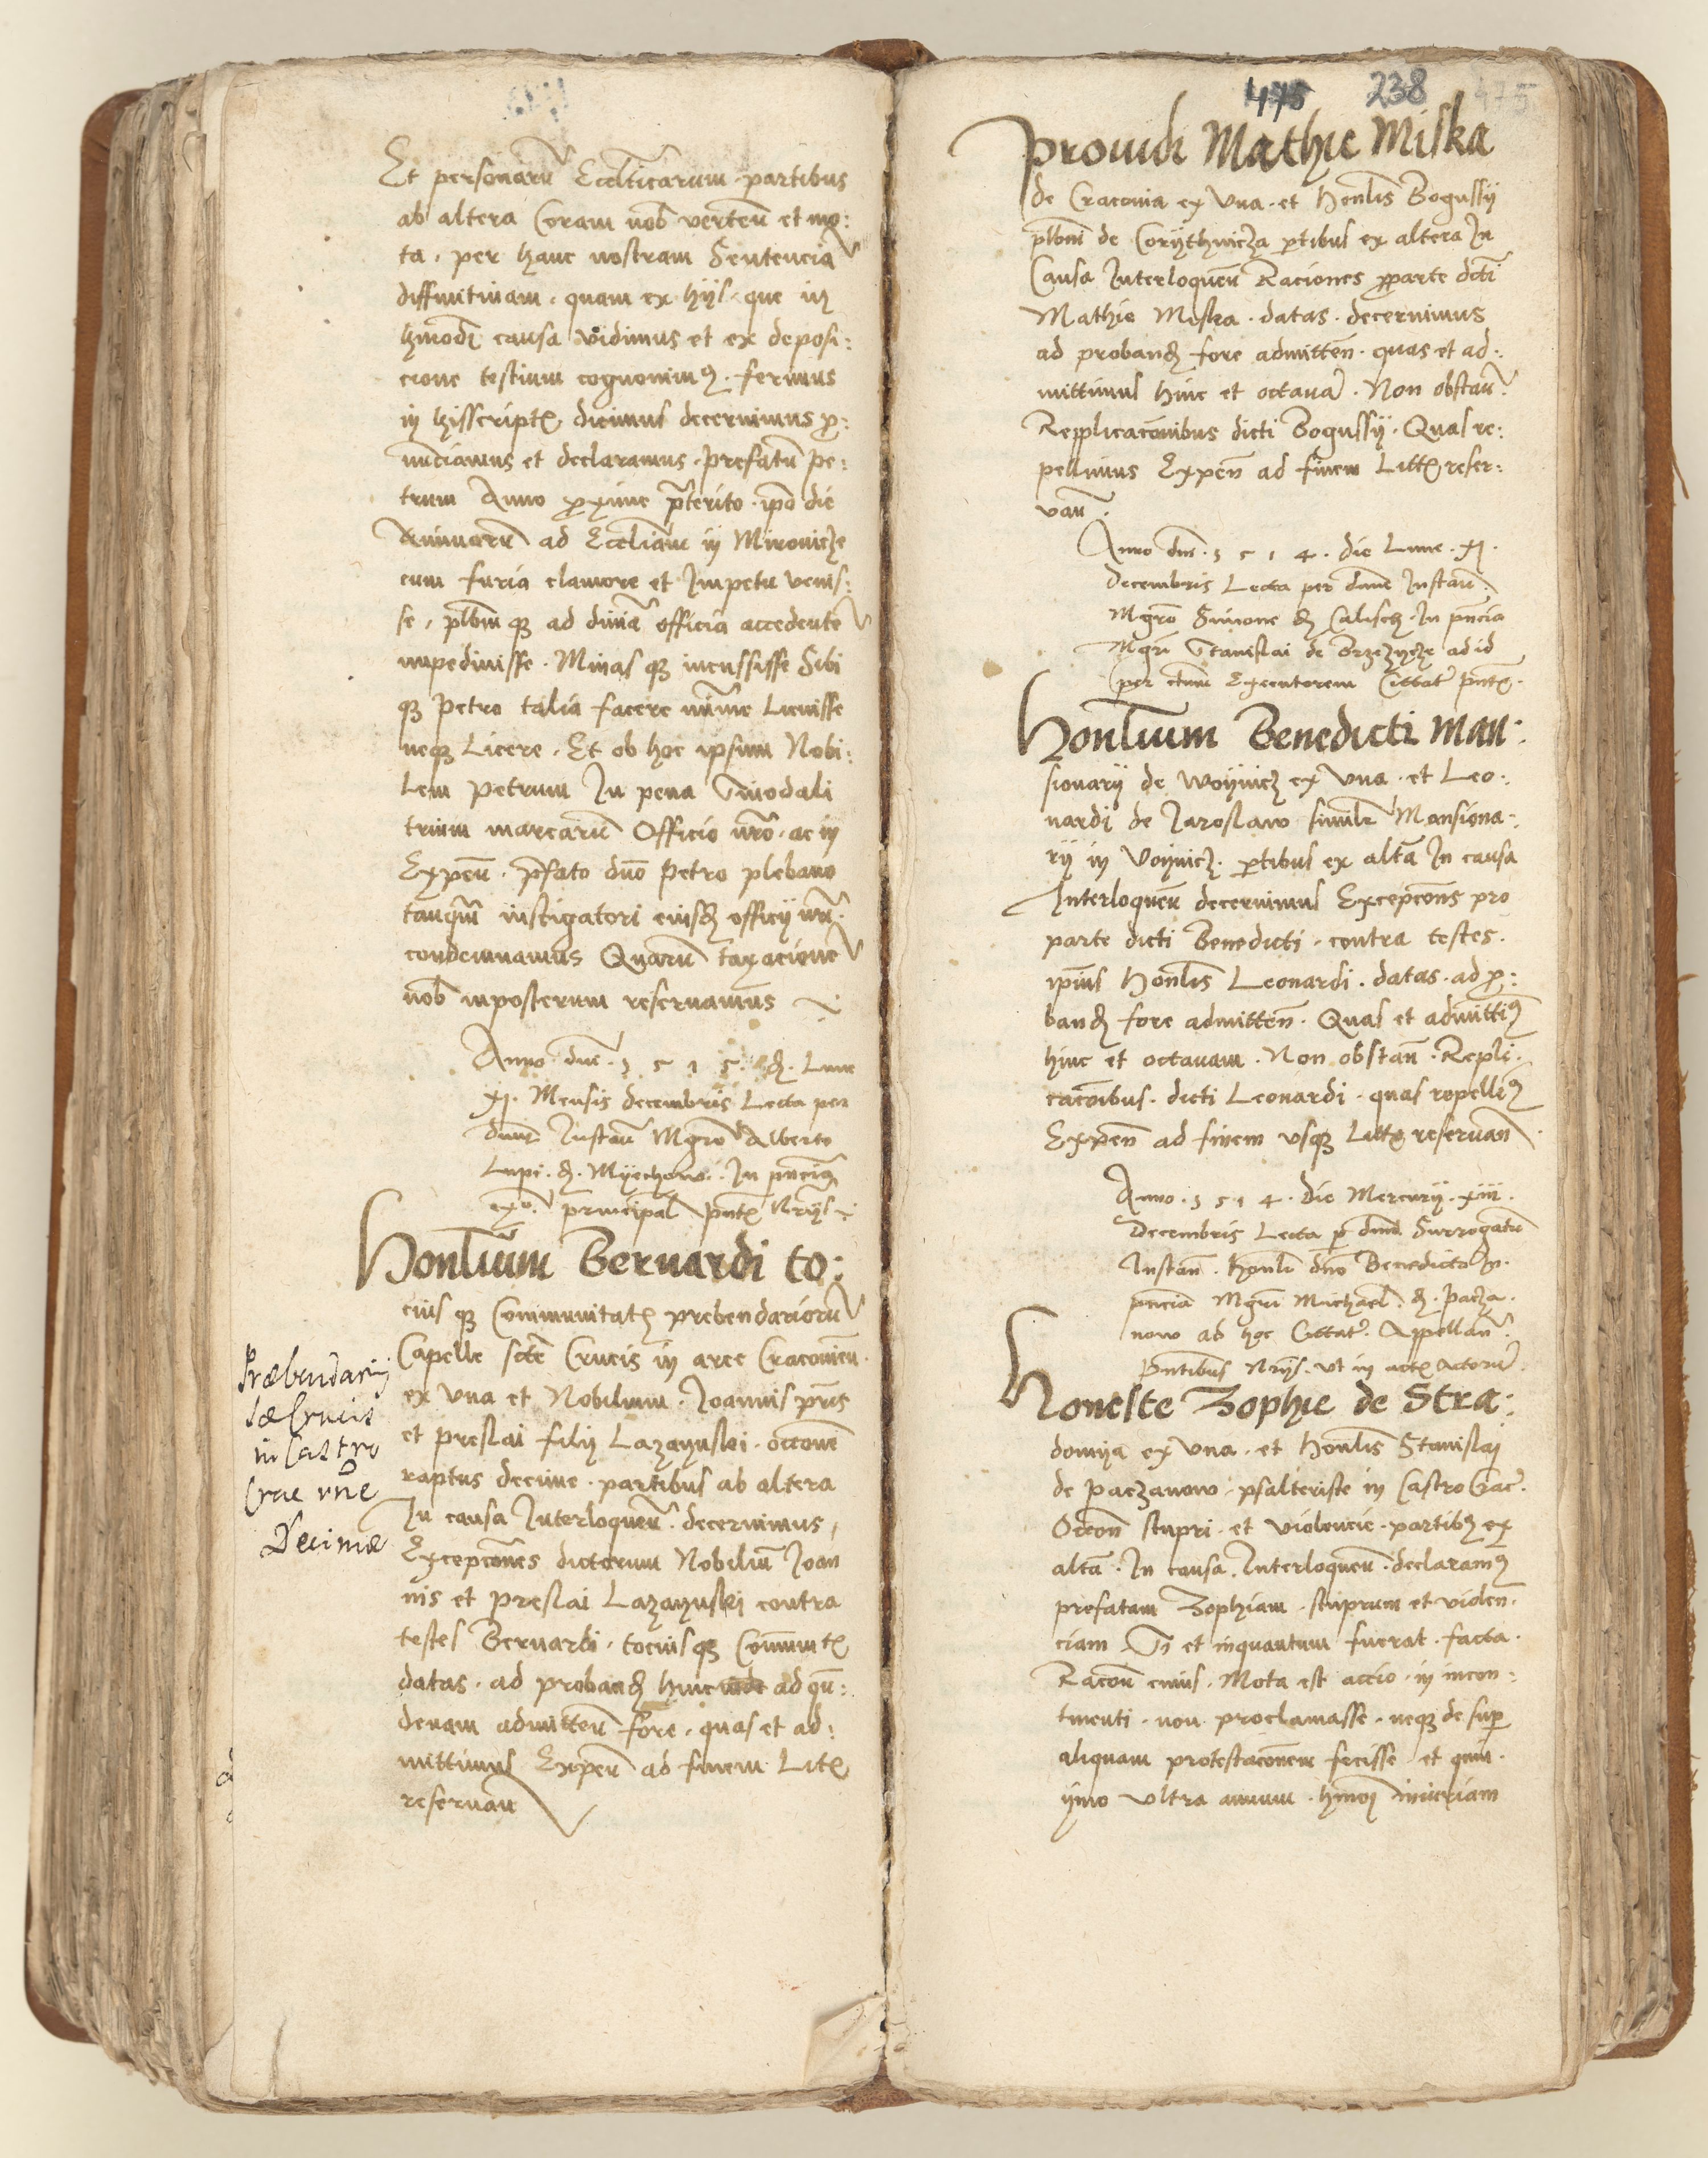 Et personarū Eccl̄ticarum partibus
ab altera Coram nob̄ verteñ et mo:
ta, per hanc nostram Sentencia
diffinitivam, quam ex hijs que in
hmōdi causa vidimus et ex deposi:
cione testium cognovim9, ferimus
in hisscriptꝭ dicimus decernimus ꝓ:
nunciamus et declaramus, prefatū pe:
trum Anno ꝓxime p̄terito ip̄o die
Animarū ad Eccliām in Mironicze
cum furia clamore et Impetu venis:
se, pl̄bm qꝫ ad divīa officia accedente
impedivisse. Minas qꝫ incussisse Sibi
qꝫ Petro talia facere minīme Licuisse
neqꝫ Licere. Et ob hoc ipsum Nobi:
lem Petrum In pena Sinodali
trium marcarū Officio nr̄o, ac in
Expeñ. p̄fato dn̄o Petro plebano
tanqm̄ instigatori eiusdꝫ officij nr̄i
condemnamus Quarū taxacione
nob̄ inposterum reservamus
Anno dn̄i. 1515. d. Lune
xj. Mensis decembris Lecta per
dnm̄ Instañ Mgr̄o Alberto
Lupi. d. Myechow. In pn̄cia
principal̄ pn̄tꝭ Nrijs
Honl̄ium Bernardi to:
cius qꝫ Communitatꝭ prebendarioru
Capelle scte Crucis in arce Cracovieñ.
ex Una et Nobilium. Joannis pr̄is
et preslai filij Lazaynski. occoñe
raptus decime. partibus ab altera
In causa Interloqueñ. decernimus,
Excepcōnes dictorum Nobiliū Joan
nis et Preslai Lazaynski contra
testes Bernardi. tocius qꝫ Commitꝭ
datas. ad probandꝫ hinc ad qū:
denam admitteñ fore. quas et ad:
mittimus Expeñ ad finem Litꝭ
reservañ
Præbendarij
Sæ Crucis
in Castro
Crac vñe
Decimæ
475 238 475
Providi Mathie Miska
de Cracovia ex Una. et Honl̄is Bogussij
pl̄bni de Corythnicza ꝑtibus ex altera In
Causa Interloqueñ Raciones ꝓparte dcti
Mathie Miska. datas. decernimus
ad probandꝫ fore admitteñ. quas et ad:
mittimus hinc et octavā. Non obstañ.
Repplicacōnibus dicti Bogussij. Quas re:
pellimus Expeñ ad finem Littꝭ reser:
vañ.
Anno dn̄i. 1514. die Lune. xj.
decembris Lecta per dnm̄ Instañ.
Mgr̄o Simone d Calischꝫ. In pn̄cia
Mgr̄i Stanislai de Brzezyczꝫ ad id
per ctum Executorem Citat̄ pn̄tꝭ.
Honl̄ium Benedicti Man:
sionarij de Woynicz ex Una. et Leo:
nardi de Jaroslaw similr̄ Mansiona:
rij in Voynicz. ꝑtibus ex altā In causa
Interloqueñ decernimus Excepcōns pro
parte dicti Benedicti. contra testes.
ipīus Honl̄is Leonardi. datas. ad ꝓ:
bandꝫ fore admitteñ. Quas et admitti9
hinc et octavam. Non obstañ. Repli.
cacōibus. dicti Leonardi. quas repelli9
Expeñ ad finem usqꝫ Littꝭ reservañ.
Anno. 1514. die Mercurij. xiij.
Decembris Lecta ꝑ dnm̄ Surrogatū
Instañ. honl̄i dn̄o Benedicto In.
pn̄cia Mgr̄i Michael. d. Pacza.
now ab hoc Cittat̄. Appellañ.
Pn̄tibus Nrijs. ut in actꝭ actorū.
Honeste Zophie de Stra:
domya ex Una. et Honl̄is Stanislaj
de Paczanow. psalteriste in Castro Crac̄.
Occoñ stupri. et violencie. partibꝫ ex
altā. In causa. Interloqueñ. declaram9
prefatam Zophiam. stuprum et violen.
ciam. Si et inquantum fuerat. facta.
Racoñ cuius. Mota est actio. in incon:
tinenti. non proclamasse. neqꝫ desuꝑ
aliquam protestacōnem fecisse et quin.
ijmo ultra annum. hmōj iniuriam